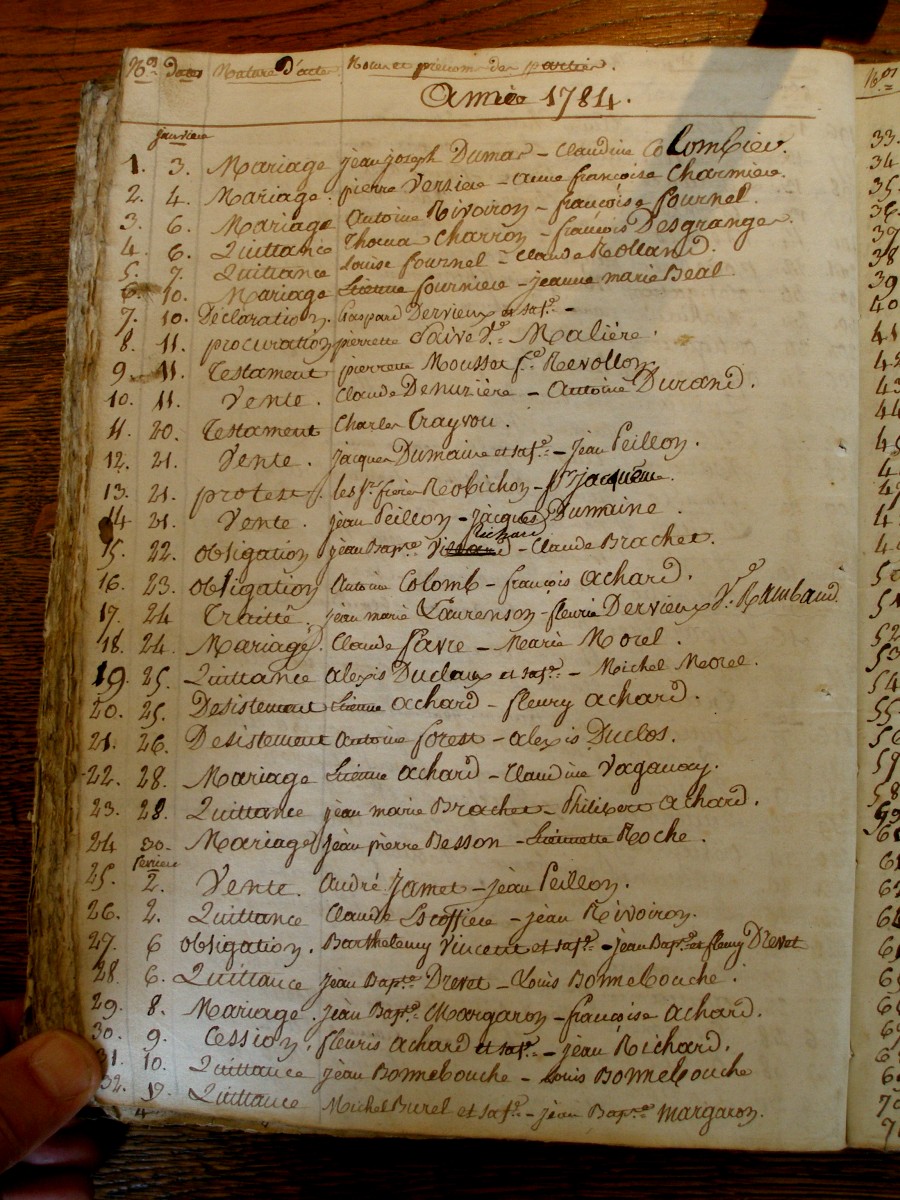 Nos Dates Nature D'actes Noms et prenoms des parties.
Année 1784.
janvier
1. 3. Mariage jean joseph Dumas - Claudine Colombier.
2. 4. Mariage. pierre Versiere - anne françoise Charmiere.
3. 6. Mariage Antoine Rivoiron - françoise fournel.
4. 6. Quittance Thomas Charron - françois Desgranges.
5. 7. Quittance Louise fournel - Claude Rolland.
6. 10. Mariage Etienne fourniere - jeanne marie Béal
7. 10. Déclaration. Gaspard Dervieux et sa fe. -
8. 11. procuration pierrette faive Ve. Malière.
9. 11. Testament pierrette Moussot fe. Revollon
10. 11. Vente. Claude Denuzière - Antoine Durand.
11. 20. Testament Charles Trayvou.
12. 21. Vente. jacques Dumaine et sa fe. - jean Peillon.
13. 21. protest. les srs. freres Robichon - jacquême.
14 21. Vente. jean Peillon - jacques Dumaine.
Richard
15. 22. obligation jean Bapte. - Claude Brachet.
16. 23. obligation Antoine Colomb - françois achard.
17. 24 Traitté. jean marie Laurenson - fleurie Dervieux Ve. Rambaud.
18. 24. Mariage. Claude favre - Marie Morel.
19. 25. Quittance alexis Duclaux et sa fe. - Michel Morel.
20. 25. Desistement Etienne achard - fleury achard.
21. 26. Desistement Antoine forest - alexis Duclos.
22. 28. Mariage Etienne achard - Claudine Vaganay.
23. 28. Quittance jean marie Brachet - Philibert achard.
24 30. Mariage jean pierre Besson - Etiennette Roche.
fevrier
25. 2. Vente. André Jamet - jean Peillon.
26. 2. Quittance Claude Escoffier - jean Rivoiron.
27. 6 obligation. Barthelemy Vincent et sa fe. - jean Bapte. et fleury Drevet
28. 6. Quittance jean Bapte. Drevet - Louis Bonnebouche.
29. 8. Mariage. jean Bapte. Margaron - françoise achard.
30. 9. Cession. fleuris achard et sa fe. - jean Richard.
31. 10. Quittance jean Bonnebouche - Louis Bonnebouche
32. Quittance Michel Burel et sa fe. - jean Bapte. margaron.
Nos
33.
34
35.
36.
37
38
39
40
41
42
43
44